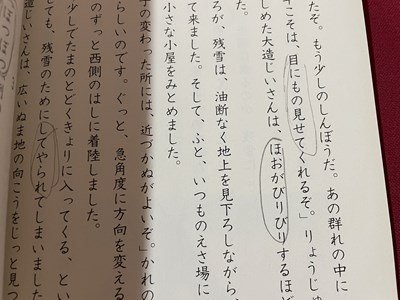 たぞ。もう少しのしんぼうだ。あの群れの中に
こそは、目にもの見せてくれるぞ。」りょうじゅ
しめた大造じいさんは、ほおがびりびりするほど
た。
ろが、残雪は、油断なく地上を見下ろしながら、
て来ました。そして、ふと、いつものえさ場に
小さな小屋をみとめました。
子の変わった所には、近づかぬがよいぞ」かれの
らしいのです。ぐっと、急角度に方向を変える
のずっと西側のはしに着陸しました。
少しでたまのとどくきょりに入ってくる、とい
しても、残雪のためにしてやられてしまいました
造じいさんは、広いぬま地の向こうをじっと見つ